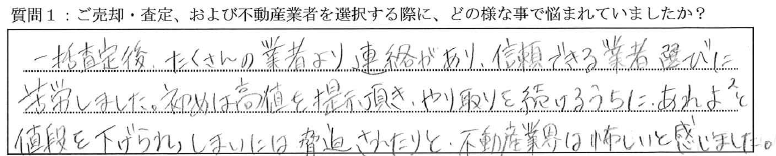 質問1：ご売却・査定、および不動産業者を選択する際に、どの様な事で悩まれていましたか？
一括査定後、たくさんの業者より連絡があり、信頼できる業者選びに
苦労しました。初めは高値を提示頂き、やり取りを続けるうちに、あれよあれよと
値段を下げられ、しまいには脅迫されたりと、不動産業界は怖いと感じました。